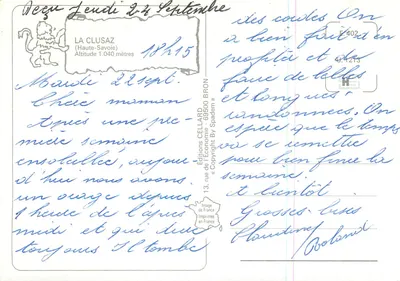 Reçu Jeudi 24 Septembre
LA CLUSAZ
(Haute-Savoie)
Altitude 1.040 mètres
18h15
Mardi 22 sept.
Chère maman
Après une pre-
mière semaine
ensoleillée, aujour-
d'hui nous avons
un orage depuis
1 heure de l'après
midi et qui dure
toujours Il tombe
Editions CELLARD
13, rue de l'Economie - 69500 BRON
« Copyright By Spadem »
Image
de France
Imprimé
en France
des cordes On
a bien fait d'en
profiter et de
faire de belles
et longues
randonnées. On
espère que le temps
va se remettre
pour bien finir la
semaine.
A bientôt.
Grosses bises
Claudine
Roland